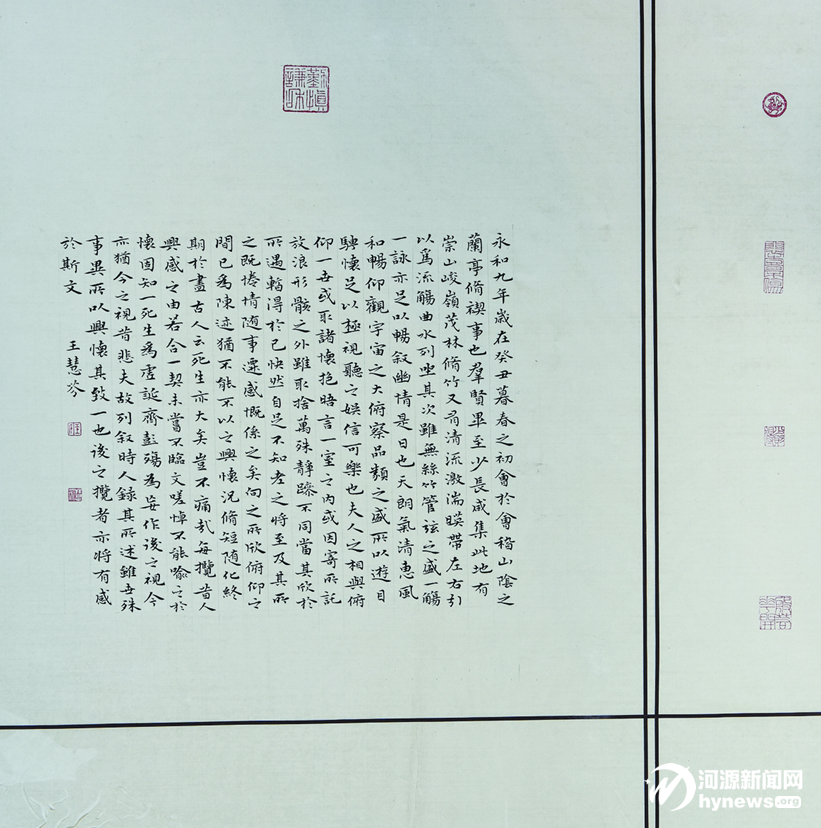 勤慎
謙和
永和九年歲在癸丑暮春之初會於會稽山陰之
蘭亭脩禊事也羣賢畢至少長咸集此地有
崇山峻嶺茂林脩竹又有清流激湍暎帶左右引
以爲流觴曲水列坐其次雖無絲竹管弦之盛一觴
一詠亦足以暢叙幽情是日也天朗氣清惠風
和暢仰觀宇宙之大俯察品類之盛所以遊目
騁懷足以極視聽之娛信可樂也夫人之相與俯
仰一世或取諸懷抱晤言一室之内或因寄所託
放浪形骸之外雖取捨萬殊靜躁不同當其欣於
所遇輒得於己快然自足不知老之將至及其所
之既惓情随事遷感慨係之矣向之所欣俯仰之
間已爲陳迹猶不能不以之興懷況脩短随化終
期於盡古人云死生亦大矣豈不痛哉每攬昔人
興感之由若合一契未嘗不臨文嗟悼不能喻之於
懷固知一死生爲虛誕齊彭殤爲妄作後之視今
亦猶今之視昔悲夫故列叙時人録其所述雖世殊
事異所以興懷其致一也後之攬者亦將有感
於斯文 王慧
河源新闻网
hynews.org